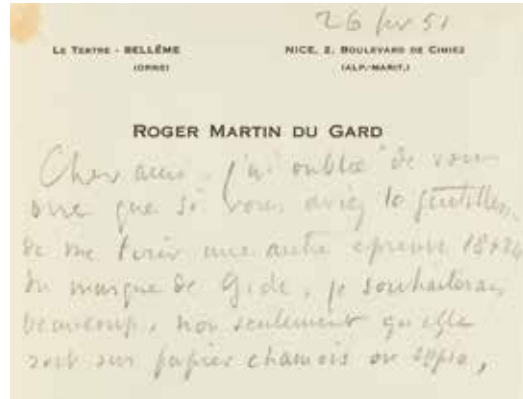 26 fev 51
LE TERTRE - BELLÊME
(ORNE)
NICE, 2, BOULEVARD DE CIMIEZ
(ALP.-MARIT.)
ROGER MARTIN DU GARD
Cher ami. j'ai oublié de vous
dire que si vous aviez la gentillesse
de me tirer une autre épreuve 18x24
du masque de Gide, je souhaiterais
beaucoup, non seulement qu'elle
soit sur papier chamois ou sépia,